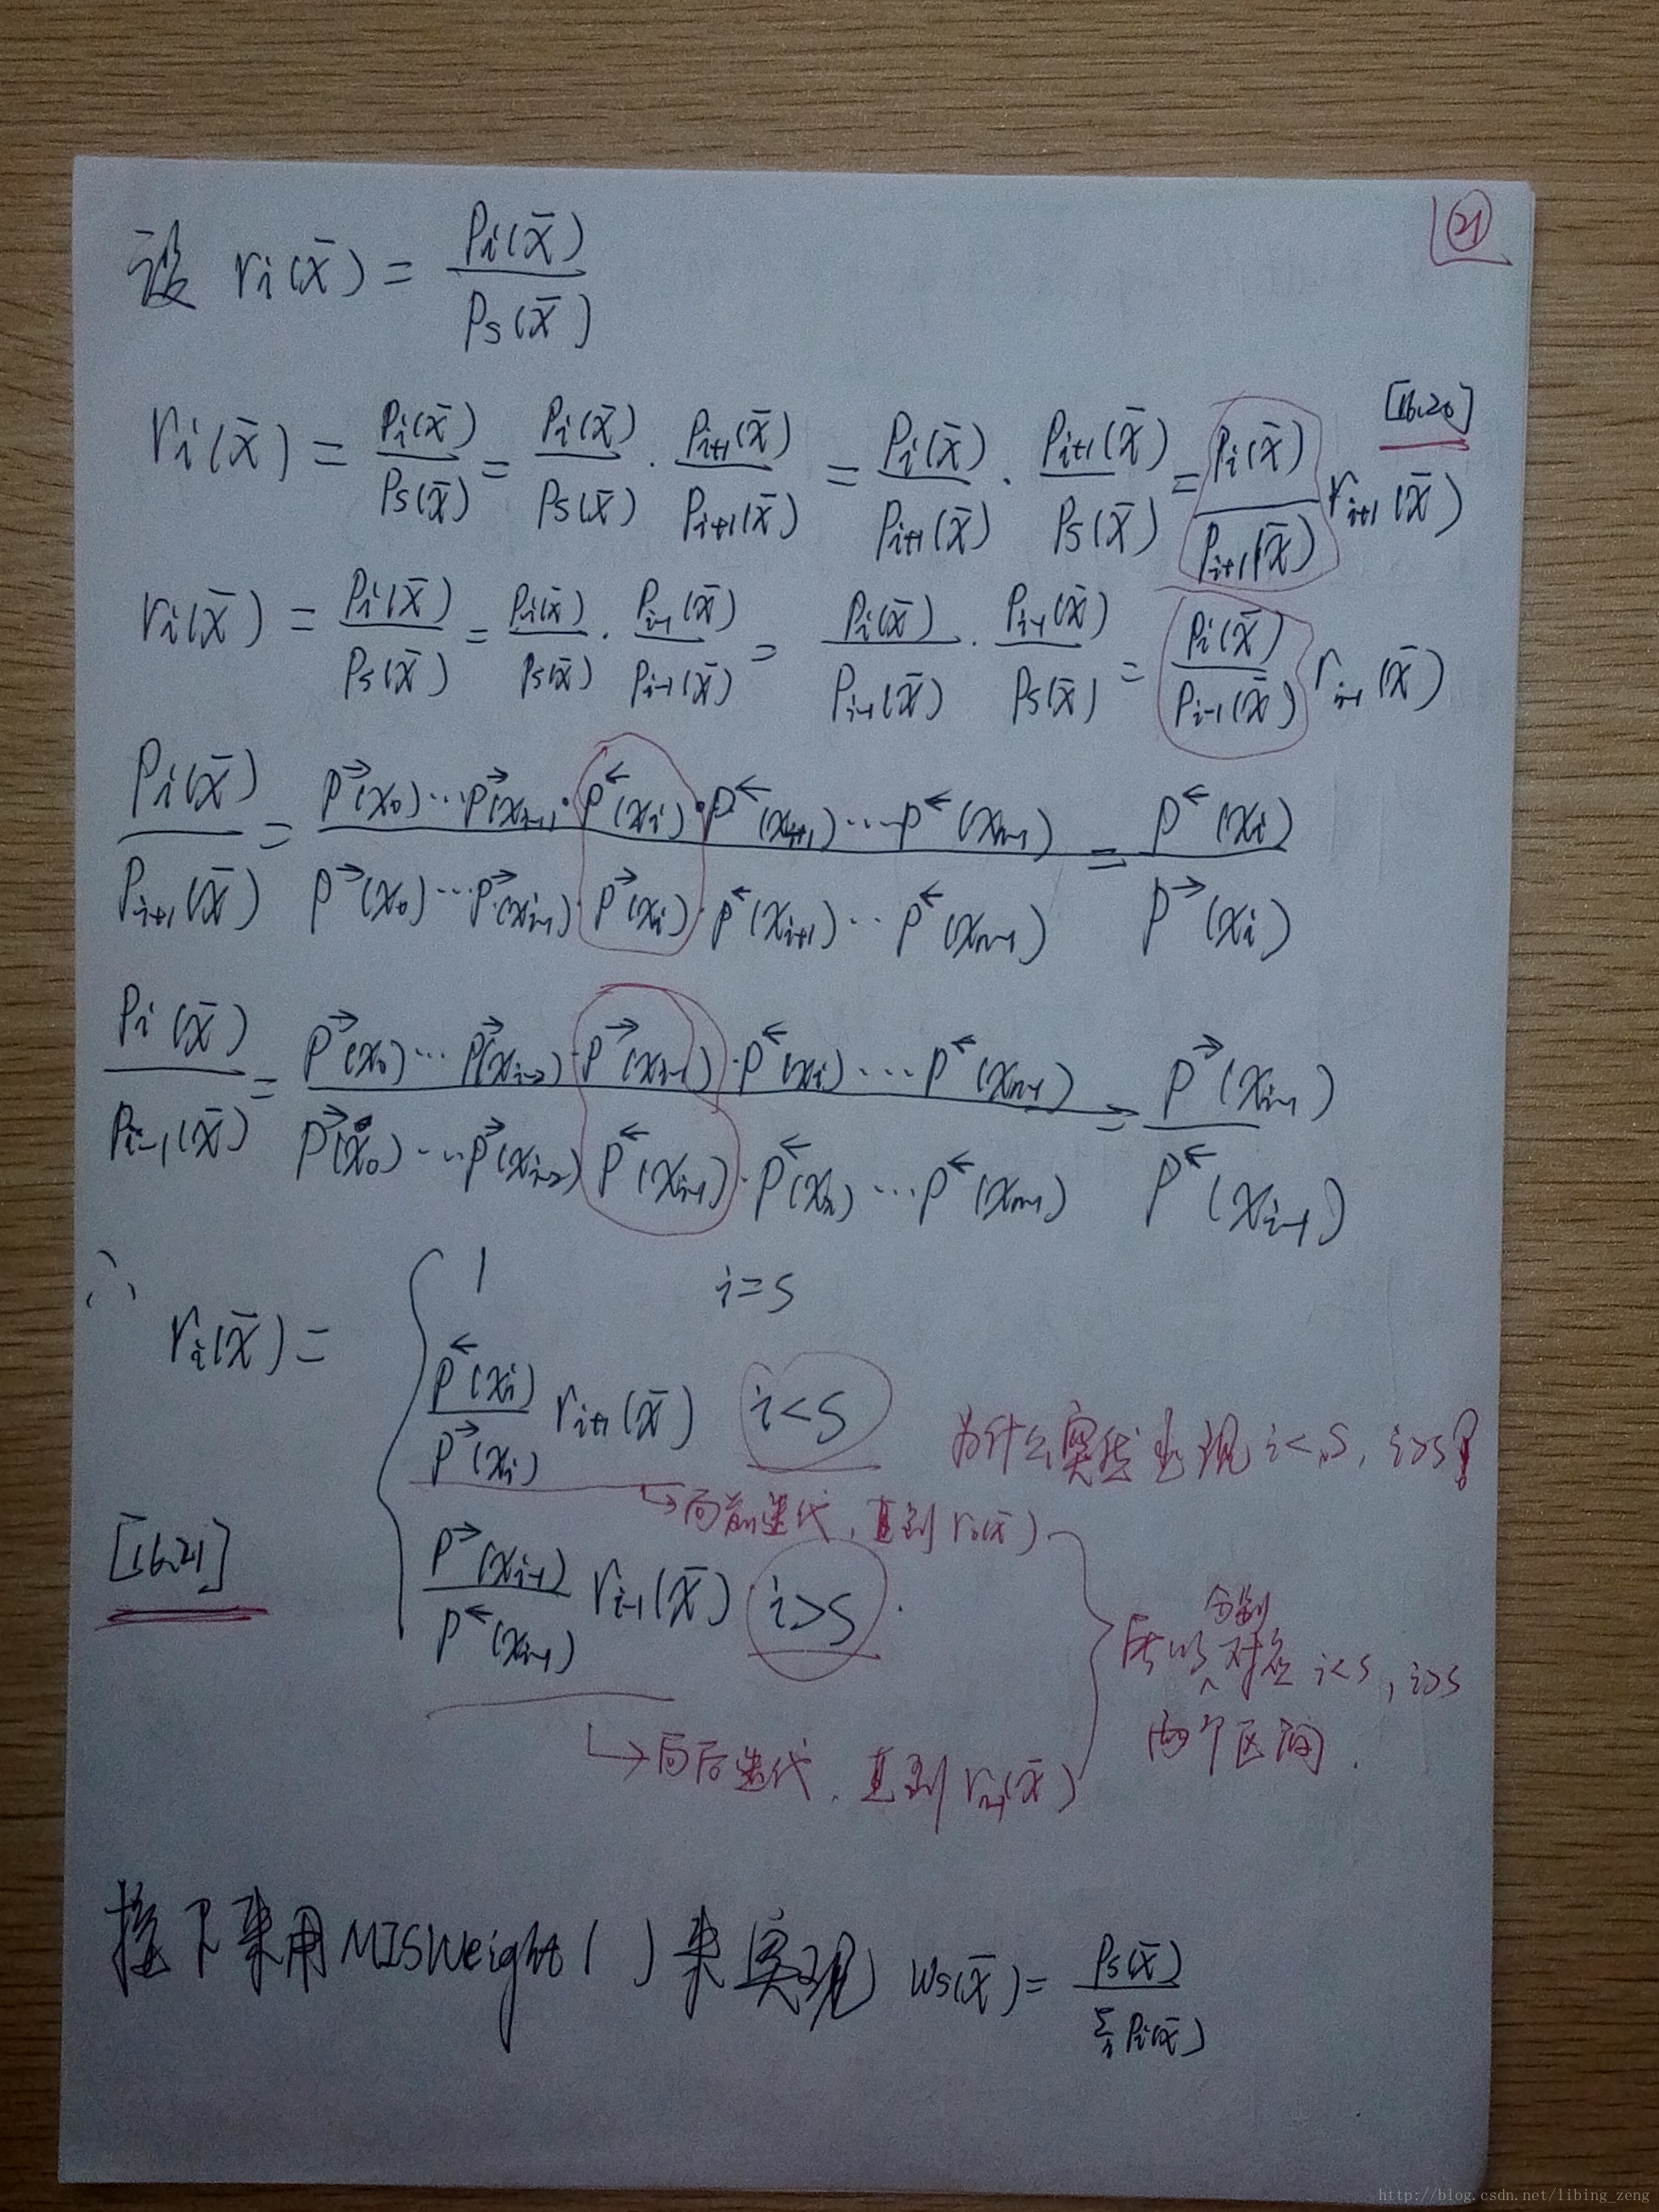 ㉑
设 rᵢ(x̄) = pᵢ(x̄) / pₛ(x̄)
[16.20]
rᵢ(x̄) = pᵢ(x̄)/pₛ(x̄) = pᵢ(x̄)/pₛ(x̄) · pᵢ₊₁(x̄)/pᵢ₊₁(x̄) = pᵢ(x̄)/pᵢ₊₁(x̄) · pᵢ₊₁(x̄)/pₛ(x̄) = pᵢ(x̄)/pᵢ₊₁(x̄) rᵢ₊₁(x̄)
rᵢ(x̄) = pᵢ(x̄)/pₛ(x̄) = pᵢ(x̄)/pₛ(x̄) · pᵢ₋₁(x̄)/pᵢ₋₁(x̄) = pᵢ(x̄)/pᵢ₋₁(x̄) · pᵢ₋₁(x̄)/pₛ(x̄) = pᵢ(x̄)/pᵢ₋₁(x̄) rᵢ₋₁(x̄)
pᵢ(x̄)/pᵢ₊₁(x̄) = p→(x₀)…p→(xᵢ₋₁)·p←(xᵢ)·p←(xᵢ₊₁)…p←(xₙ₋₁) / p→(x₀)…p→(xᵢ₋₁)·p→(xᵢ)·p←(xᵢ₊₁)…p←(xₙ₋₁) = p←(xᵢ)/p→(xᵢ)
pᵢ(x̄)/pᵢ₋₁(x̄) = p→(x₀)…p→(xᵢ₋₂)·p→(xᵢ₋₁)·p←(xᵢ)…p←(xₙ₋₁) / p→(x₀)…p→(xᵢ₋₂)p←(xᵢ₋₁)·p←(xᵢ)…p←(xₙ₋₁) = p→(xᵢ₋₁)/p←(xᵢ₋₁)
∴ rᵢ(x̄) = { 1 i=s
p←(xᵢ)/p→(xᵢ) rᵢ₊₁(x̄) i<s
为什么突然出现 i<s, i>s?
↳向前迭代, 直到 r₀(x̄)
[16.21]
p→(xᵢ₋₁)/p←(xᵢ₋₁) rᵢ₋₁(x̄) i>s.
所以分别对应 i<s, i>s
两个区间.
↳向后迭代, 直到 rₙ₋₁(x̄)
接下来用MISWeight( )来实现 wₛ(x̄) = pₛ(x̄) / Σᵢ pᵢ(x̄)
http://blog.csdn.net/libing_zeng